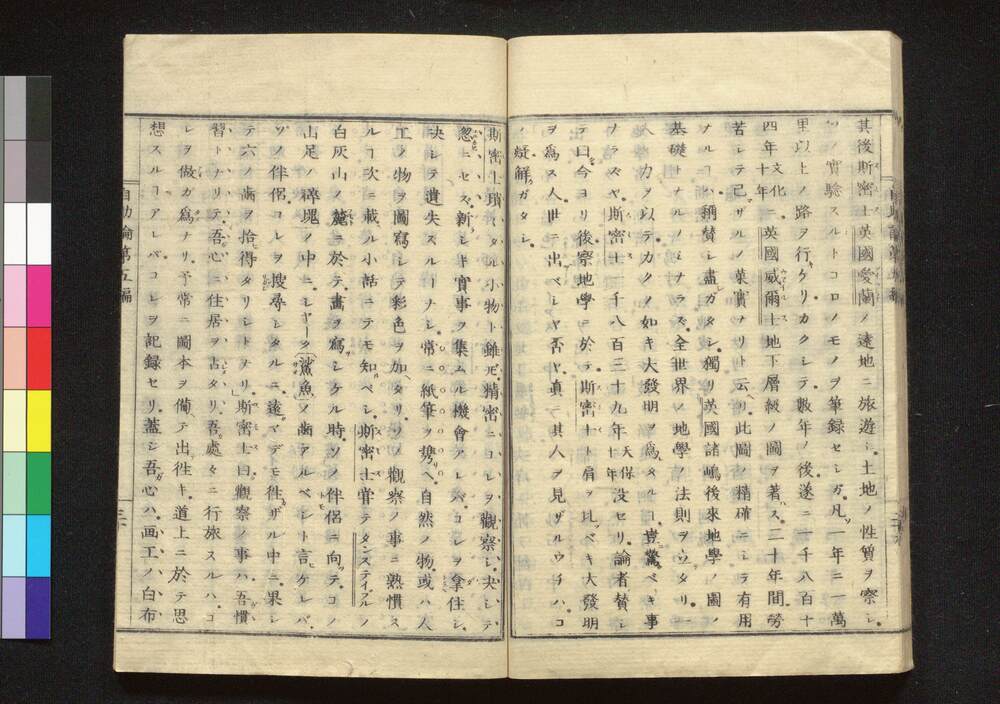 其後斯密士英國愛蘭ノ遠地ニ旅遊シ土地ノ性質ヲ察シ
ソノ實驗スルトコロノモノヲ筆録セシガ凡ソ一年ニ一萬
里以上ノ路ヲ行ケリカクシテ數年ノ後遂ニ一千八百十
四年文化十年英國威爾士地下層級ノ圖ヲ著ハス二十年間勞
苦シテ已マザルノ菓實ナリト云ヘリ此圖ノ精確ニシテ有用
ナルコハ稱賛シ盡ガタシ獨リ英國諸嶋後來地學ノ圖ノ
基礎トナルノミナラス全世界ノ地學ノ法則ヲ立タリ一
人ノ力ヲ以テカクノ如キ大發明ヲ為タルコ豈驚ベキ事
ナラズヤ斯密士一千八百三十九年天保十年没セリ論者賛シ
テ曰ク今ヨリ後察地學ニ於テ斯密士ト肩ヲ比ベキ大發明
ヲ為ス人世ニ出ベシヤ否ヤ真ニ其人ヲ見ザルウチハコ
ノ疑解ガタシ
斯密士瑣々タル小物ト雖モ精密ニコレヲ觀察シ決シテ
忽ニセズ新シキ實事ヲ集ムル機會アレバコレヲ拿住シ
決シテ遺失スルコナシ常ニ紙筆ヲ携ヘ自然ノ物或ハ人
工ノ物ヲ圖寫シテ彩色ヲ加タリソノ觀察ノ事ニ熟慣ス
ルコ次ニ載ル小話ニテモ知ベシ斯密士嘗テダンステイブルノ
白灰山ノ麓ニ於テ畫ヲ寫シケル時ソノ伴侶ニ向ヒテコノ
山足ノ碎塊ノ中ニシヤーク鯊魚ノ歯アルベシト言ケレバ
ソノ伴侶コレヲ搜尋シタルニ遠マデモ徃ザル中ニ果シ
テ六ノ歯ヲ拾得タリシトナリ斯密士曰觀察ノ事ハ吾慣
習トナリテ吾心ニ住居ヲ占タリ吾處々ニ行旅スルハコ
レヲ做ガ為ナリ予常ニ圖本ヲ備テ出徃キ道上ニ於テ思
想スルコアレバコレヲ記録セリ蓋シ吾心ハ画工ノ白布
自助論第五編